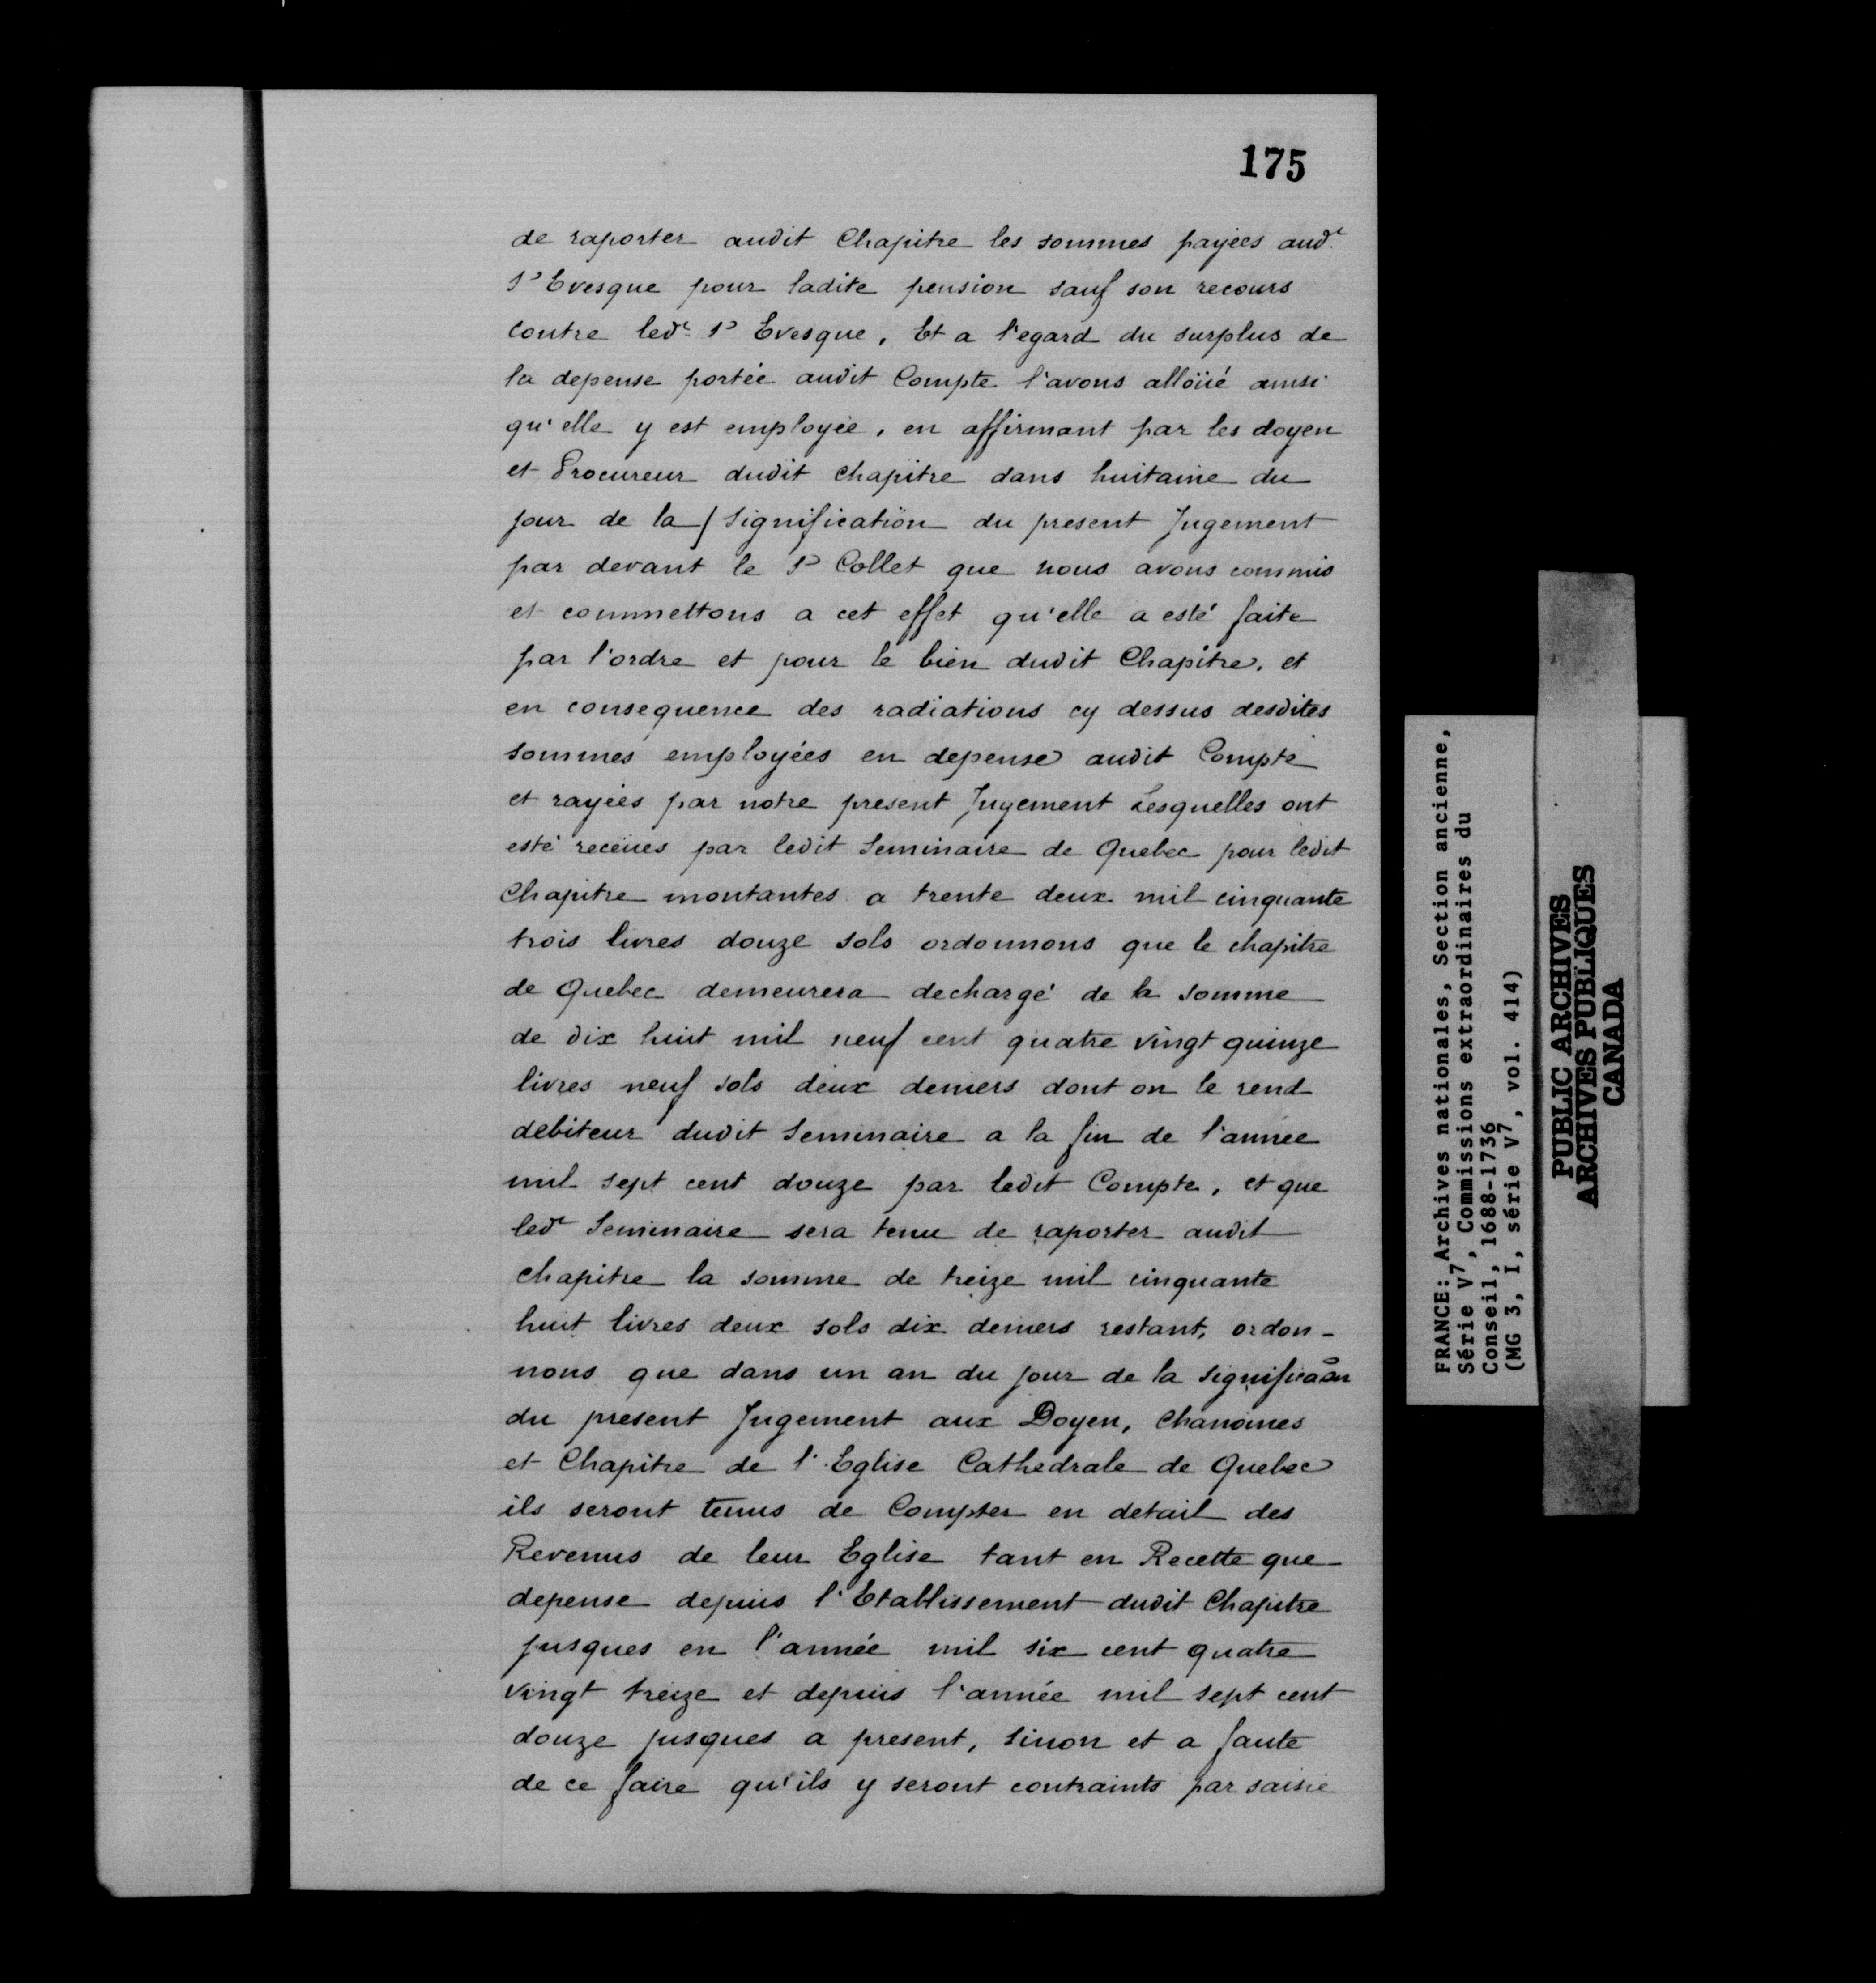 175
de raporter audit Chapitre les sommes payées aud.t
S.r Evesque pour ladite pension sauf son recours
contre led.t S.r Evesque, Et a l'egard du surplus de
la depense portée audit Compte l'avons alloüé ainsi
qu'elle y est employée, en affirmant par les doyen
et Procureur dudit chapitre dans huitaine du
jour de la / signification du present Jugement
par devant le S.r Collet que nous avons commis
et commettons a cet effet qu'elle a esté faite
par l'ordre et pour le bien dudit Chapitre, et
en consequence des radiations cy dessus desdites
sommes employées en depense audit Compte
et rayées par notre present Jugement Lesquelles ont
esté receües par ledit Seminaire de Quebec pour ledit
Chapitre montantes a trente deux mil cinquante
trois livres douze sols ordonnons que le chapitre
de Quebec demeurera dechargé de la somme
de dix huit mil neuf cent quatre vingt quinze
livres neuf sols deux deniers dont on le rend
debiteur dudit Seminaire a la fin de l'année
mil sept cent douze par ledit Compte, et que
led.t Seminaire sera tenu de raporter audit
chapitre la somme de treize mil cinquante
huit livres deux sols dix deniers restant, ordon-
nous que dans un an du jour de la significaõn
du present Jugement aux Doyen, Chanoines
et Chapitre de l'Eglise Cathedrale de Quebec
ils seront tenus de Compter en detail des
Revenus de leur Eglise tant en Recette que
depense depuis l'Etablissement dudit Chapitre
jusques en l'année mil six cent quatre
vingt treize et depuis l'année mil sept cent
douze jusques a present, sinon et a faute
de ce faire qu'ils y seront contraints par saisie
FRANCE: Archives nationales, Section ancienne,
Série V7, Commissions extraordinaires du
Conseil, 1688-1736
(MG 3, I, série V7, vol. 414)
PUBLIC ARCHIVES
ARCHIVES PUBLIQUES
CANADA